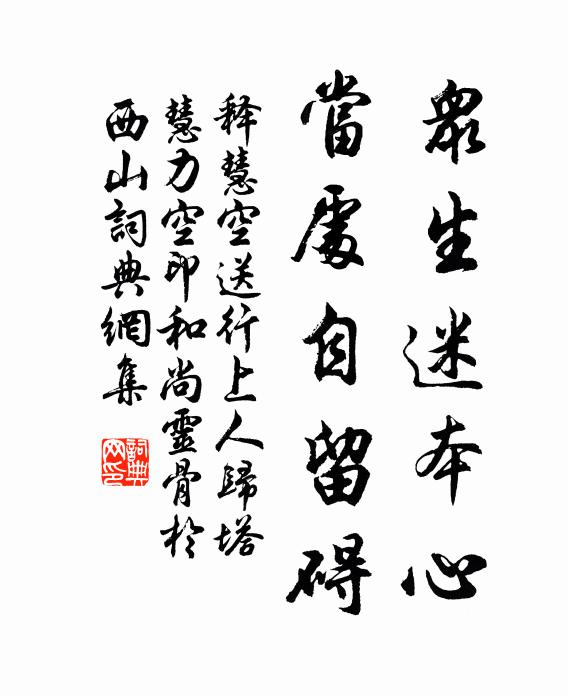 眾生迷本心
當處自留礙
释慧空送行上人歸塔
慧力空印和尚靈骨於
西山詞典網集
詞典网印